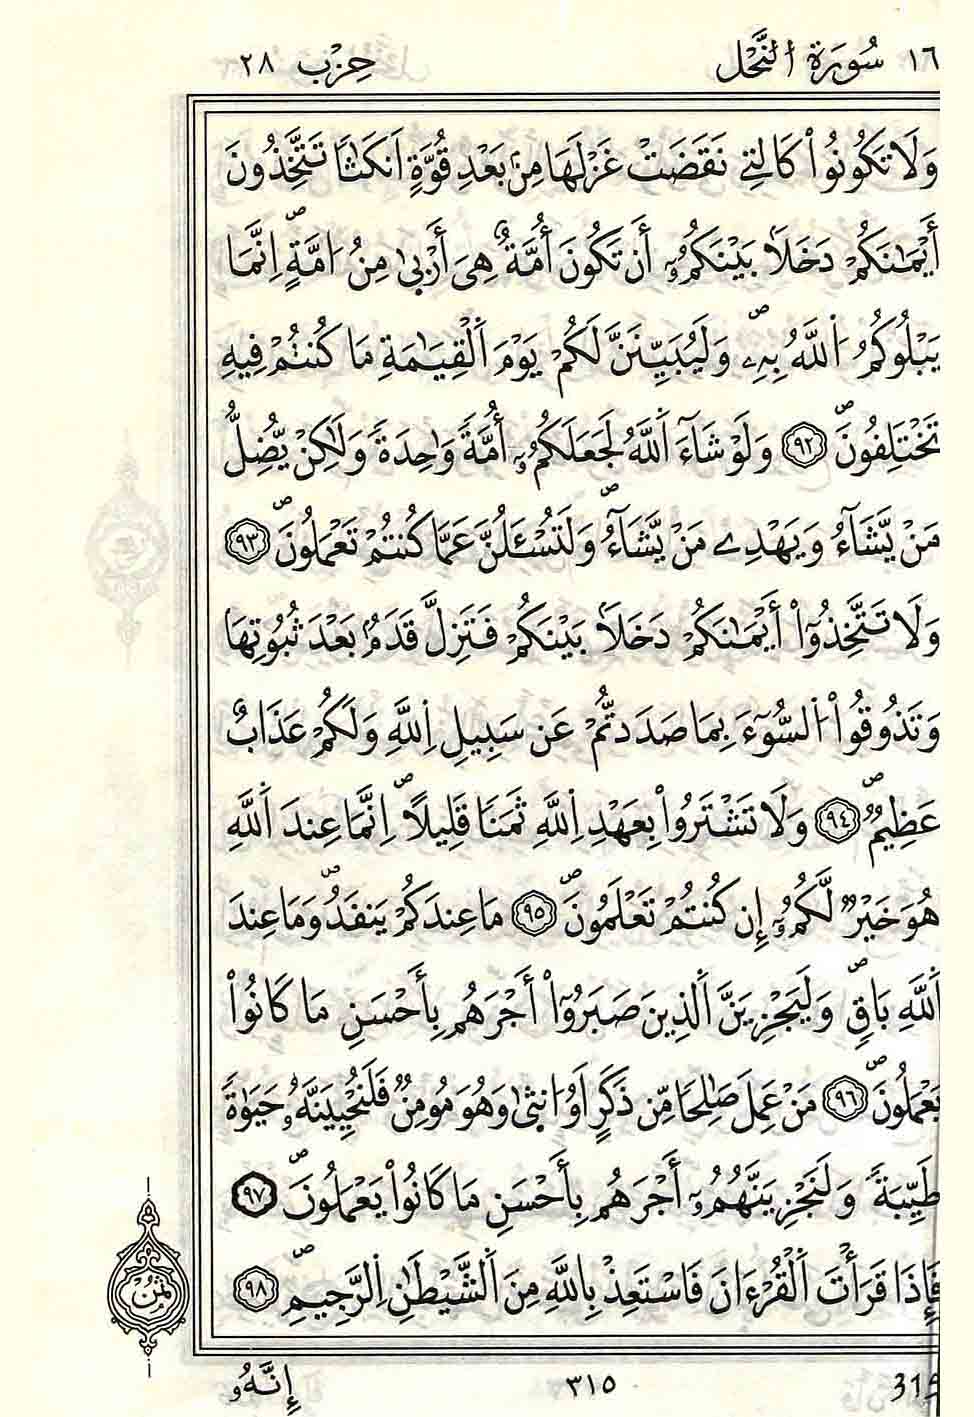 ١٦ سُورَةُ اُ۬لنَّحْلِ حِزْب ٢٨
وَلَا تَكُونُواْ كَالتِے نَقَضَتْ غَزْلَهَا مِنۢ بَعْدِ قُوَّةٍ اَنكَٰثاٗ تَتَّخِذُونَ
أَيْمَٰنَكُمْ دَخَلَاۢ بَيْنَكُمُۥٓ أَن تَكُونَ أُمَّةٌ هِيَ أَرْب۪يٰ مِنُ ا۟مَّةٍۖ اِنَّمَا
يَبْلُوكُمُ اُ۬للَّهُ بِهِۦۖ وَلَيُبَيِّنَنَّ لَكُمْ يَوْمَ اَ۬لْقِيَٰمَةِ مَا كُنتُمْ فِيهِ
تَخْتَلِفُونَۖ ٩٢ وَلَوْ شَآءَ اَ۬للَّهُ لَجَعَلَكُمُۥٓ أُمَّةٗ وَٰحِدَةٗ وَلَٰكِنْ يُّضِلُّ
مَنْ يَّشَآءُ وَيَهْدِے مَنْ يَّشَآءُۖ وَلَتُسْـَٔلُنَّ عَمَّا كُنتُمْ تَعْمَلُونَۖ ٩٣
وَلَا تَتَّخِذُوٓاْ أَيْمَٰنَكُمْ دَخَلَاۢ بَيْنَكُمْ فَتَزِلَّ قَدَمُۢ بَعْدَ ثُبُوتِهَا
وَتَذُوقُواْ اُ۬لسُّوٓءَ بِمَا صَدَدتُّمْ عَن سَبِيلِ اِ۬للَّهِ وَلَكُمْ عَذَابٌ
عَظِيمٞۖ ٩٤ وَلَا تَشْتَرُواْ بِعَهْدِ اِ۬للَّهِ ثَمَناٗ قَلِيلاًۖ اِنَّمَا عِندَ اَ۬للَّهِ
هُوَ خَيْرٞ لَّكُمُۥٓ إِن كُنتُمْ تَعْلَمُونَۖ ٩٥ مَا عِندَكُمْ يَنفَدُۖ وَمَا عِندَ
اَ۬للَّهِ بَاقٖۖ وَلَيَجْزِيَنَّ اَ۬لذِينَ صَبَرُوٓاْ أَجْرَهُم بِأَحْسَنِ مَا كَانُواْ
يَعْمَلُونَۖ ٩٦ مَنْ عَمِلَ صَٰلِحاٗ مِّن ذَكَرٍ اَوُ ا۟نث۪يٰ وَهُوَ مُومِنٞ فَلَنُحْيِيَنَّهُۥ حَيَوٰةٗ
طَيِّبَةٗ وَلَنَجْزِيَنَّهُمُۥٓ أَجْرَهُم بِأَحْسَنِ مَا كَانُواْ يَعْمَلُونَۖ ٩٧
فَإِذَا قَرَأْتَ اَ۬لْقُرْءَانَ فَاسْتَعِذْ بِاللَّهِ مِنَ اَ۬لشَّيْطَٰنِ اِ۬لرَّجِيمِۖ ٩٨
ثمن
إِنَّهُۥ ٣١٥ 315